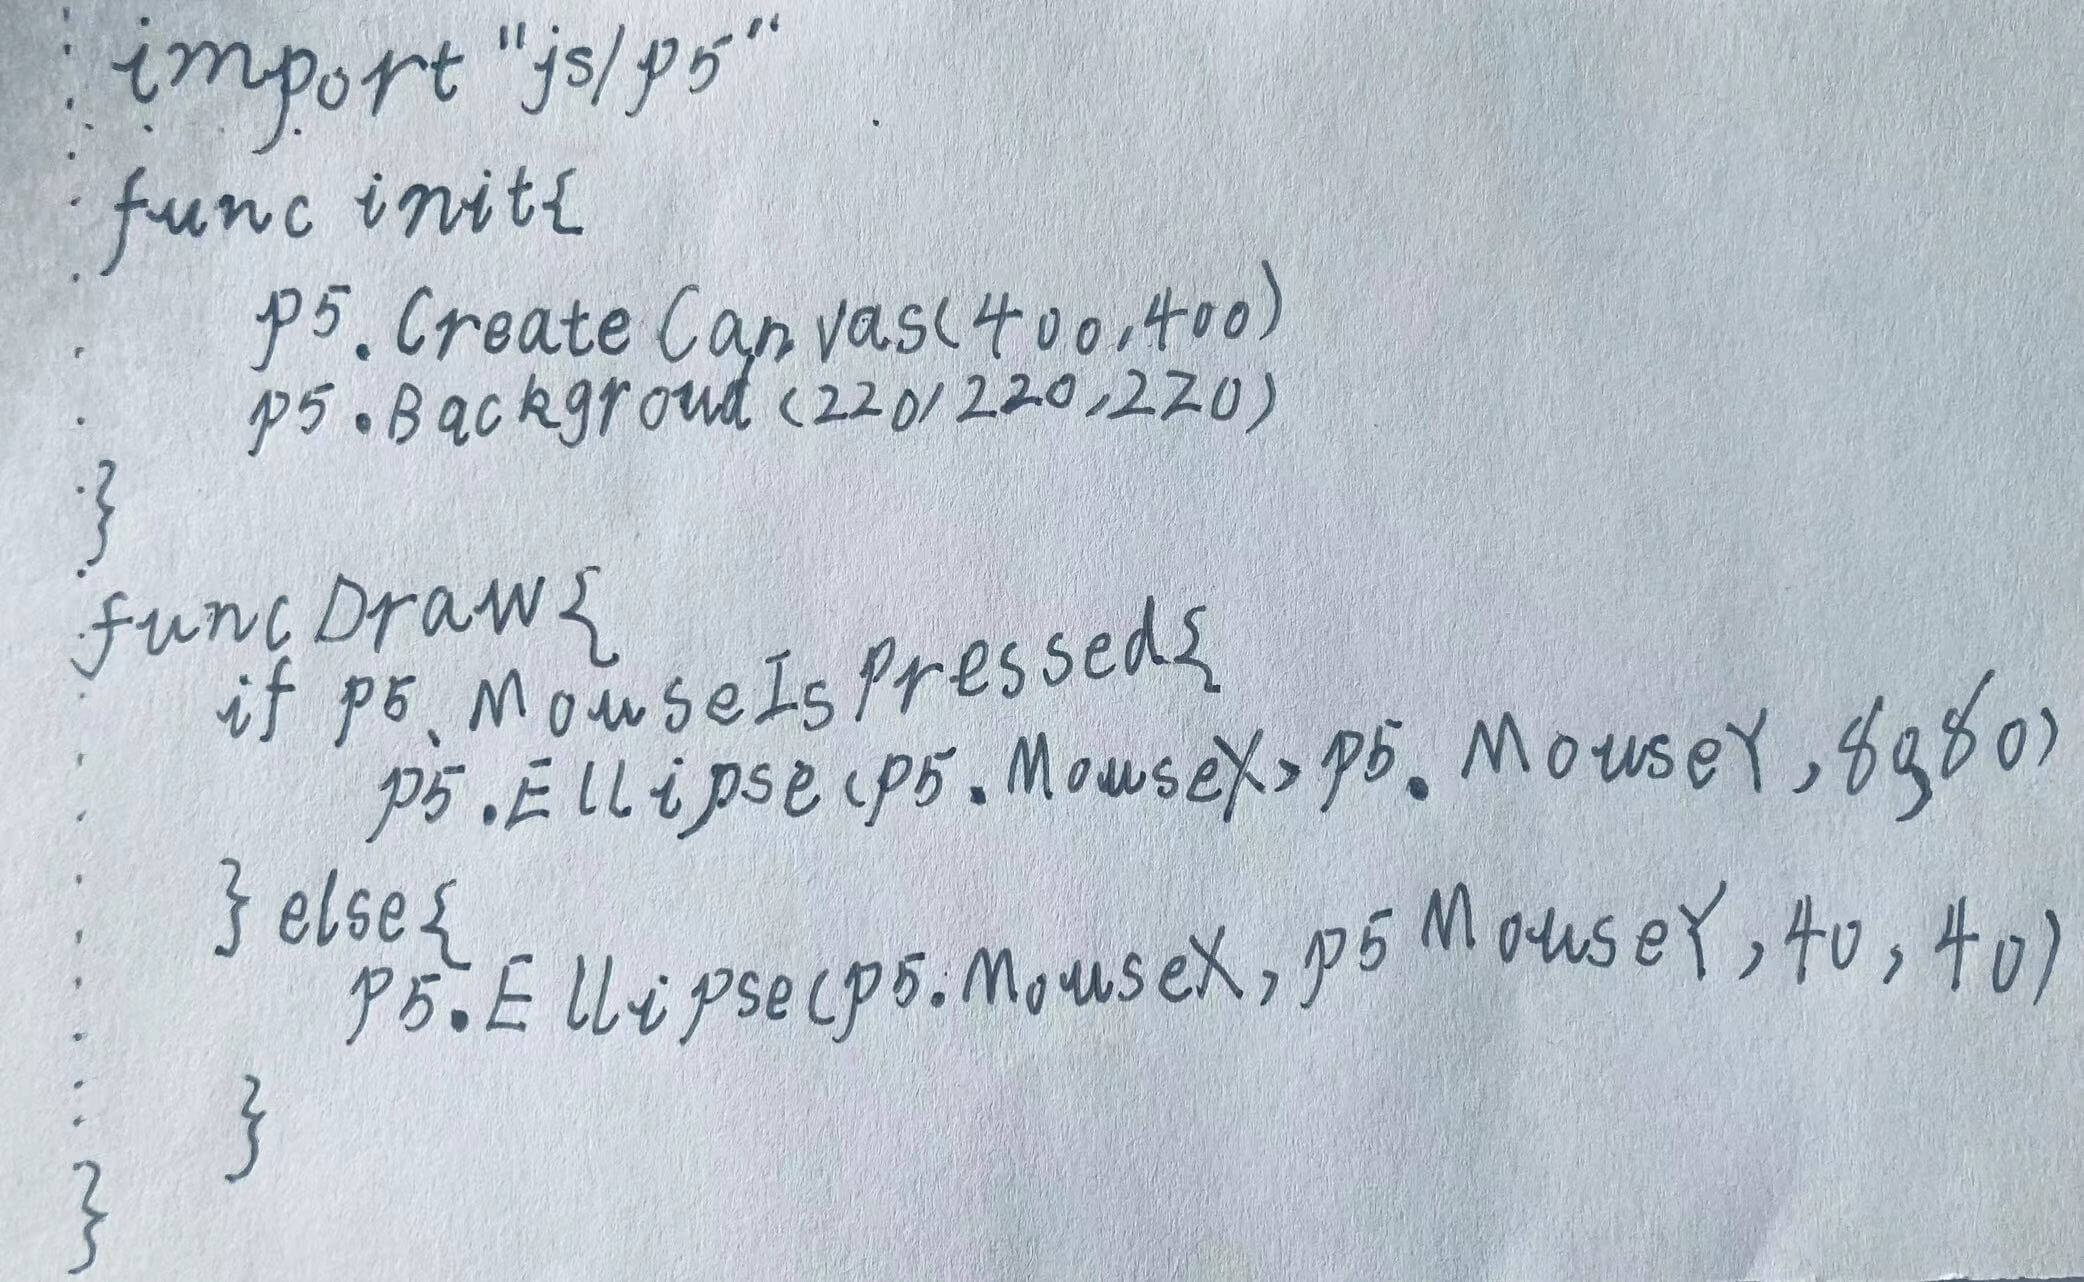 import "js/p5"
func init{
p5.CreateCanvas(400,400)
p5.Backgroud(220,220,220)
}
func Draw{
if p5.MouseIsPressed{
p5.Ellipse(p5.MouseX,p5.MouseY,80,80)
} else{
p5.Ellipse(p5.MouseX,p5 MouseY,40,40)
}
}